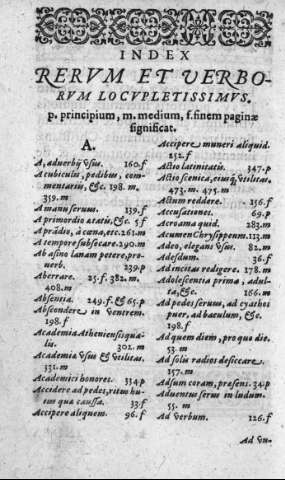 INDEX
RERVM ET VERBO-
RVM LOCVPLETISSIMVS.
p. principium, m. medium, f. finem paginæ
significat.
A.
A, aduerbij vsus. 160.f
A cubiculis, pedibus, com-
mentarijs, &c. 198. m.
359.m
A manu seruus. 139.f
A primordio ætatis, &c. 5 f
A prādio, à cœna, etc. 263.m
A tempore subsecare. 290.m
Ab asino lanam petere, pro-
uerb. 239.p
Aberrare. 25.f. 382. m.
408.m
Absentia. 249.f. & 65.p
Abscondere in ventrem.
198.f
Academia Atheniensis qua-
lis. 302.m
Academiæ vsus & vtilitas.
331.m
Academici honores. 334.p
Accidere ad pedes, ritus hu-
ius quæ caussa. 33.f
Accipere aliquem. 96.f
Accipere muneri aliquid.
252.f
Actio latinitatis. 347.p
Actio scenica, eiusq; vtilitas.
473. m. 475.m
Actum reddere. 256.f
Accusationes. 69.p
Acroama quid. 283.m
Acumen Chrysippeum. 113.m
Adeo, elegans vsus. 82.m
Adesdum. 36.f
Ad incitas redigere. 178.m
Adolescentia prima, adul-
ta, &c. 166.m
Ad pedes seruus, ad cyathos
puer, ad baculum, &c.
198.f
Ad quem diem, pro quo die.
53.m
Ad solis radios desiccare.
157.m
Adsum coram, præsens. 34.p
Aduentus serus in ludum.
55. m
Ad verbum. 126.f
Ad vn-